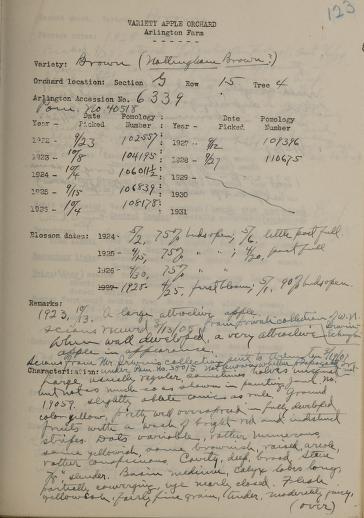 123
VARIETY APPLE ORCHARD
Arlington Farm
Variety: Brown (Nottingham Brown?)
Orchard location: Section G Row 15 Tree 4
Arlington Accession No. 6339
Pom. No. 40518
Date Pomology Date Pomology
Year - Picked Number : Year - Picked Number
1922 - 9/23 102557: 1927 - 9/12 109396
1923 - 10/8 104195: 1928 - 9/27 110675
1924 - 10/4 : 1929 -
1925 - 9/15 106839: 1930
1926 - 10/4 108178: 1931
Blossom dates: 1924- 5/2, 75% buds open; 5/6, little past full.
1925 - 4/15, 75% " " ; 4/20, past full
1926 - 4/30, 75% " "
1928 - 4/25, first bloom; 5/1, 90% buds open.
Remarks:
1923, 10/13. A large attractive apple.
Scions received from collection of W.N.
When well developed, a very attractive
apple in appearance.
Scions from Mr. collection sent to
Characterization: under Pom. No.
Large, usually regular,
but not as much so as shown in painting Pom. No.
19057. Slightly oblate conic as rule. Ground
color yellow, pretty well overspread in fully developed
fruits with a wash of bright red and indistinct
stripes. Dots variable, rather numerous
some yellowish, some brownish, raised,
rather conspicuous. Cavity, deep, broad. Stem
slender. Basin medium, Calyx lobes long,
partially converging, eye nearly closed. Flesh
yellowish, fairly fine grain, tender, moderately juicy,
(over)